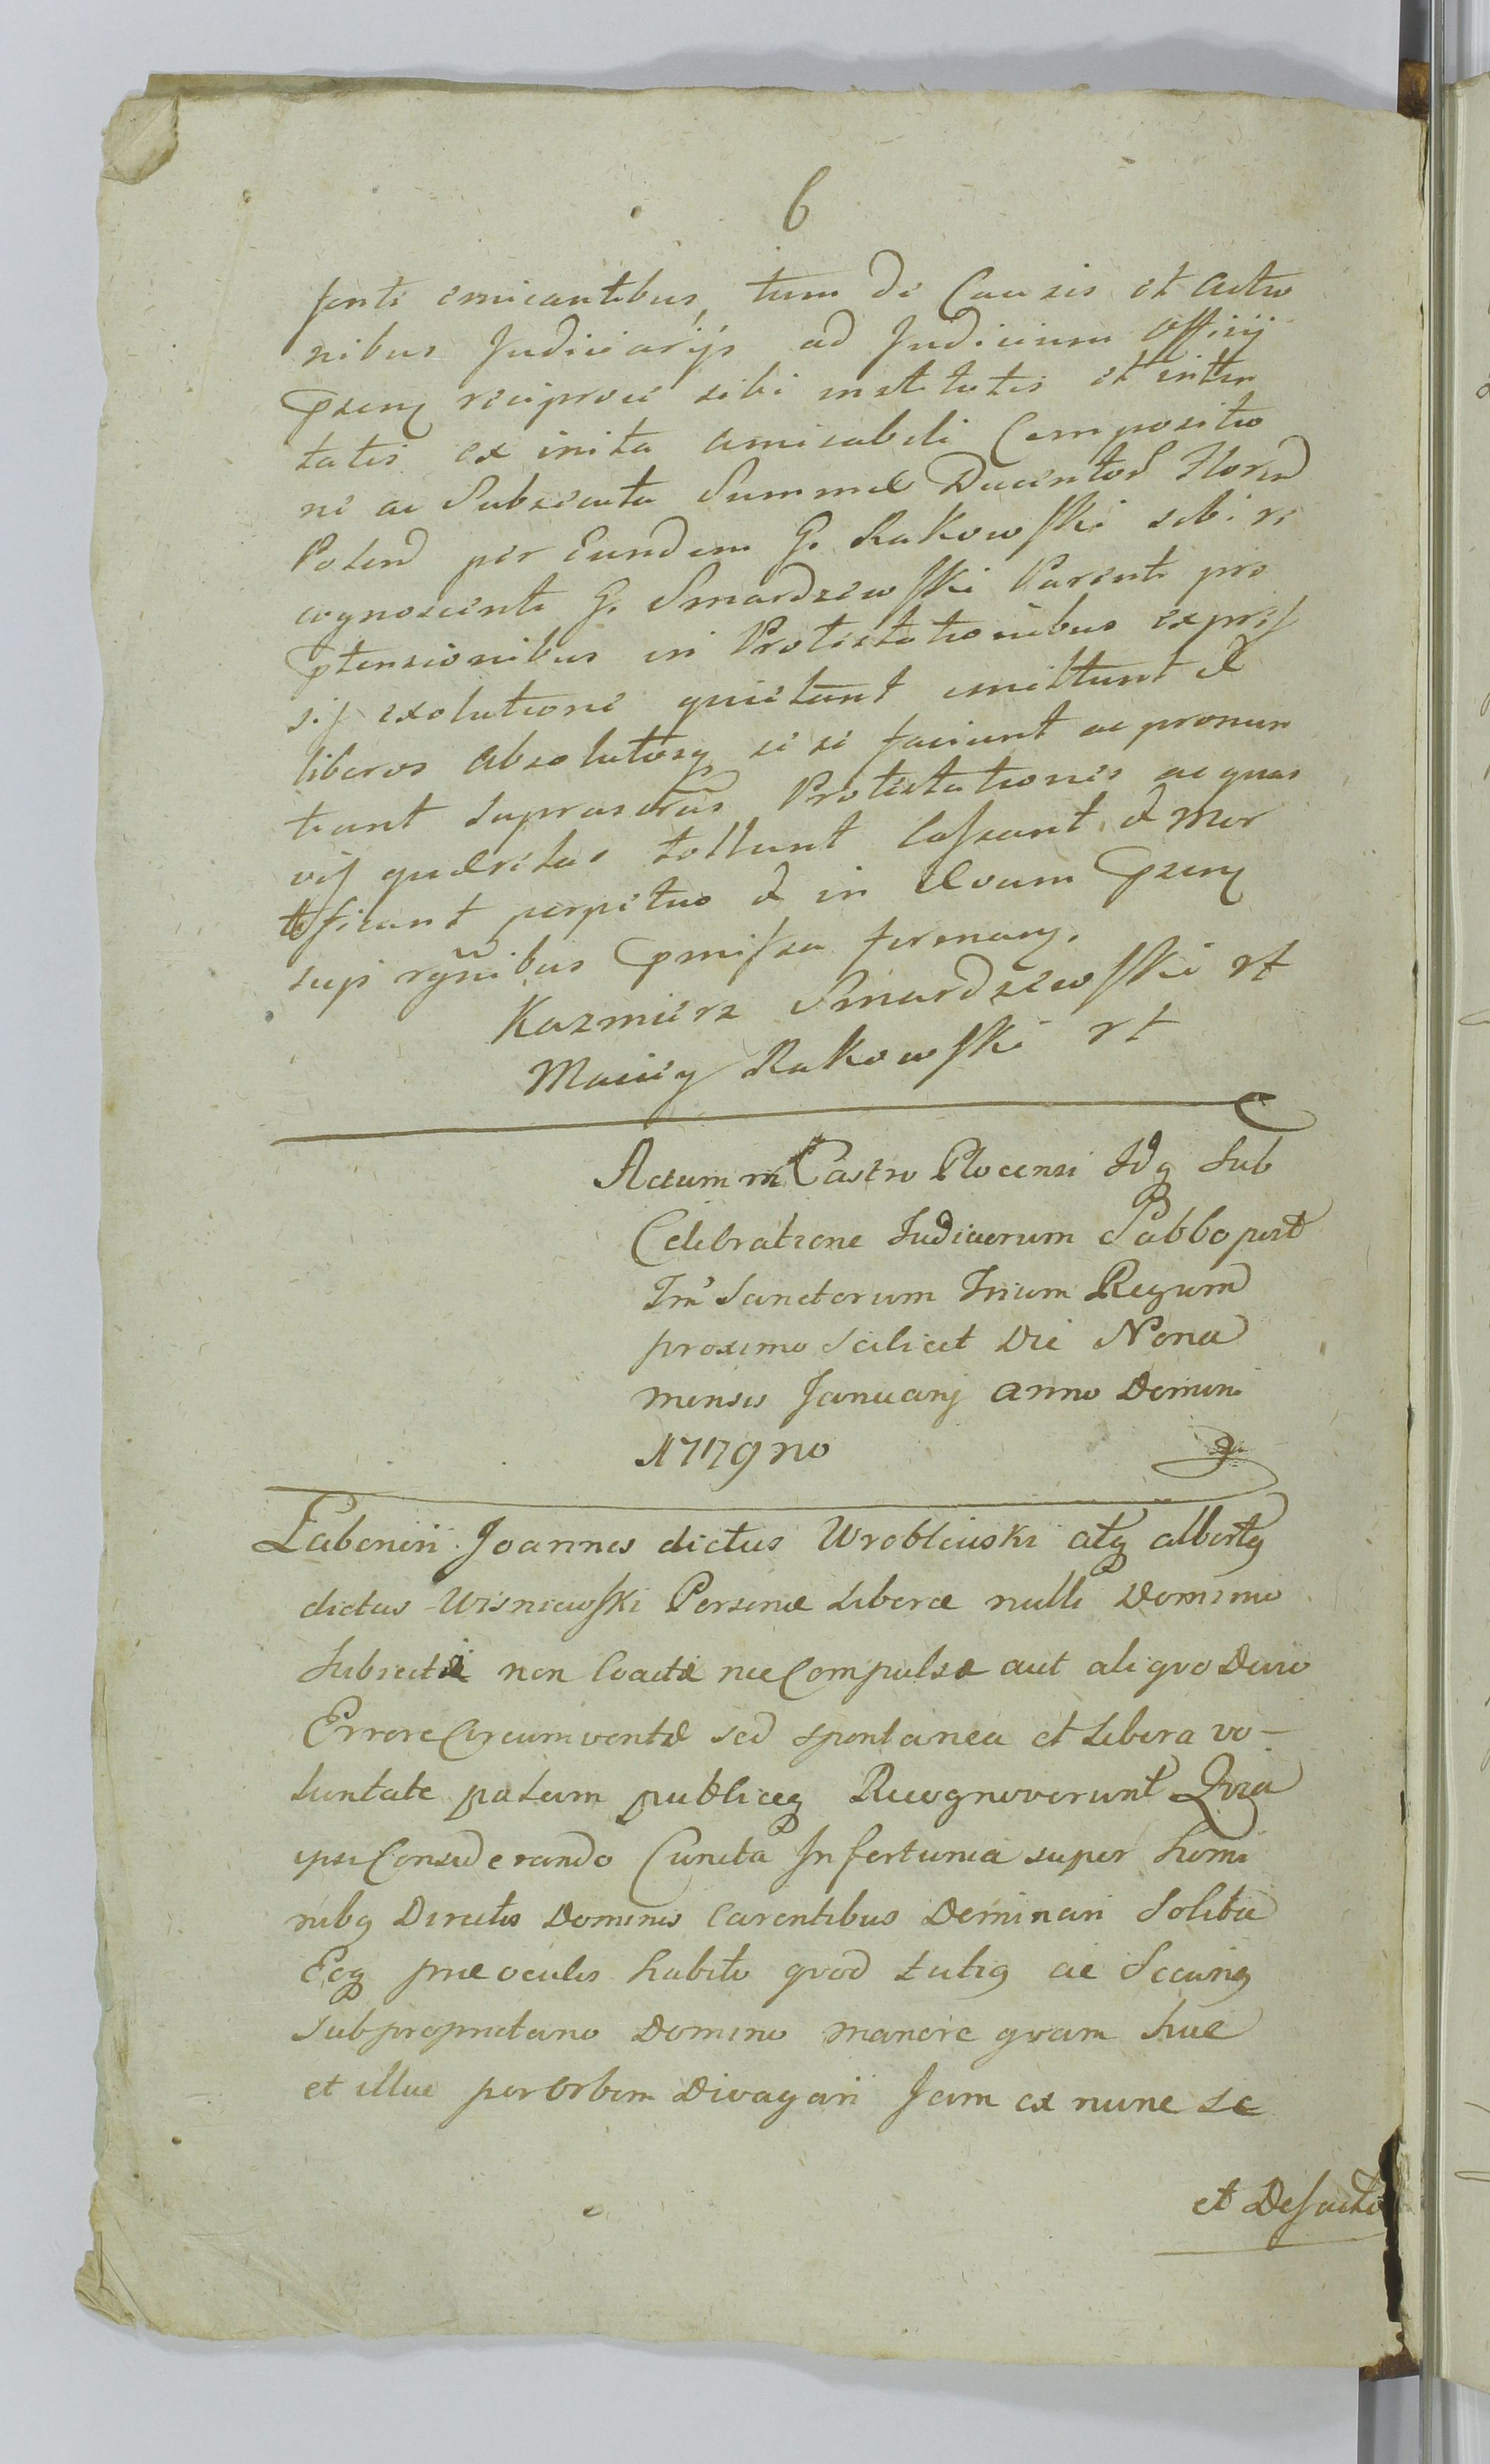 6
senti emicantibus, tum de Causis et Actio
nibus Judiciarijs ad Judicium Officij
Pseng reciproce sibi institutis et inten
tatis ex inita amicabili Compositio
ne ac Subsecuta Summæ Ducentor Floren
Polon per Eundem G. Rakowski sibi re
cognoscenti G. Smardzewski Parenti pro
ptensionibus in Protestationibus expres
sis exolutione quietant emittunt &
liberos absolutosq se se faciunt ac pronun
tiant suprascras Protestationes ac quas
vis quæritas tollunt Cassant & mor
tificant perpetuo & in Ævum Pseng
sup rgnibus pmissa firmang.
Kazmierz Smardzewski rt
Maciey Rakowski rt
Actum in Castro Plocensi Idq Sub
Celebratione Judiciorum Sabbo post
Fm Sanctorum Trium Regum
proximo Scilicet Die Nona
mensis Januarij Anno Domini
1779no
Laboriosi Joannes dictus Wroblewski atq albertq
dictus Wisniewski Personæ Liberæ nulli Dominio
Subiectæ non Coactæ nec Compulsæ aut aliquo Devio
Errore Circumventæ sed spontanea et Libera vo-
luntate palam publiceq Recognoverunt Quia
ipsi Considerando Cuncta Infortunia super homi
nibq Directis Dominis Carentibus Dominari Solita
Eoq præ oculis habito quod tutiq ac Securiq
sub proprietario Domino manere quam huc
et illuc per Orbem Divagari Jam ex nunc se
et Defacto